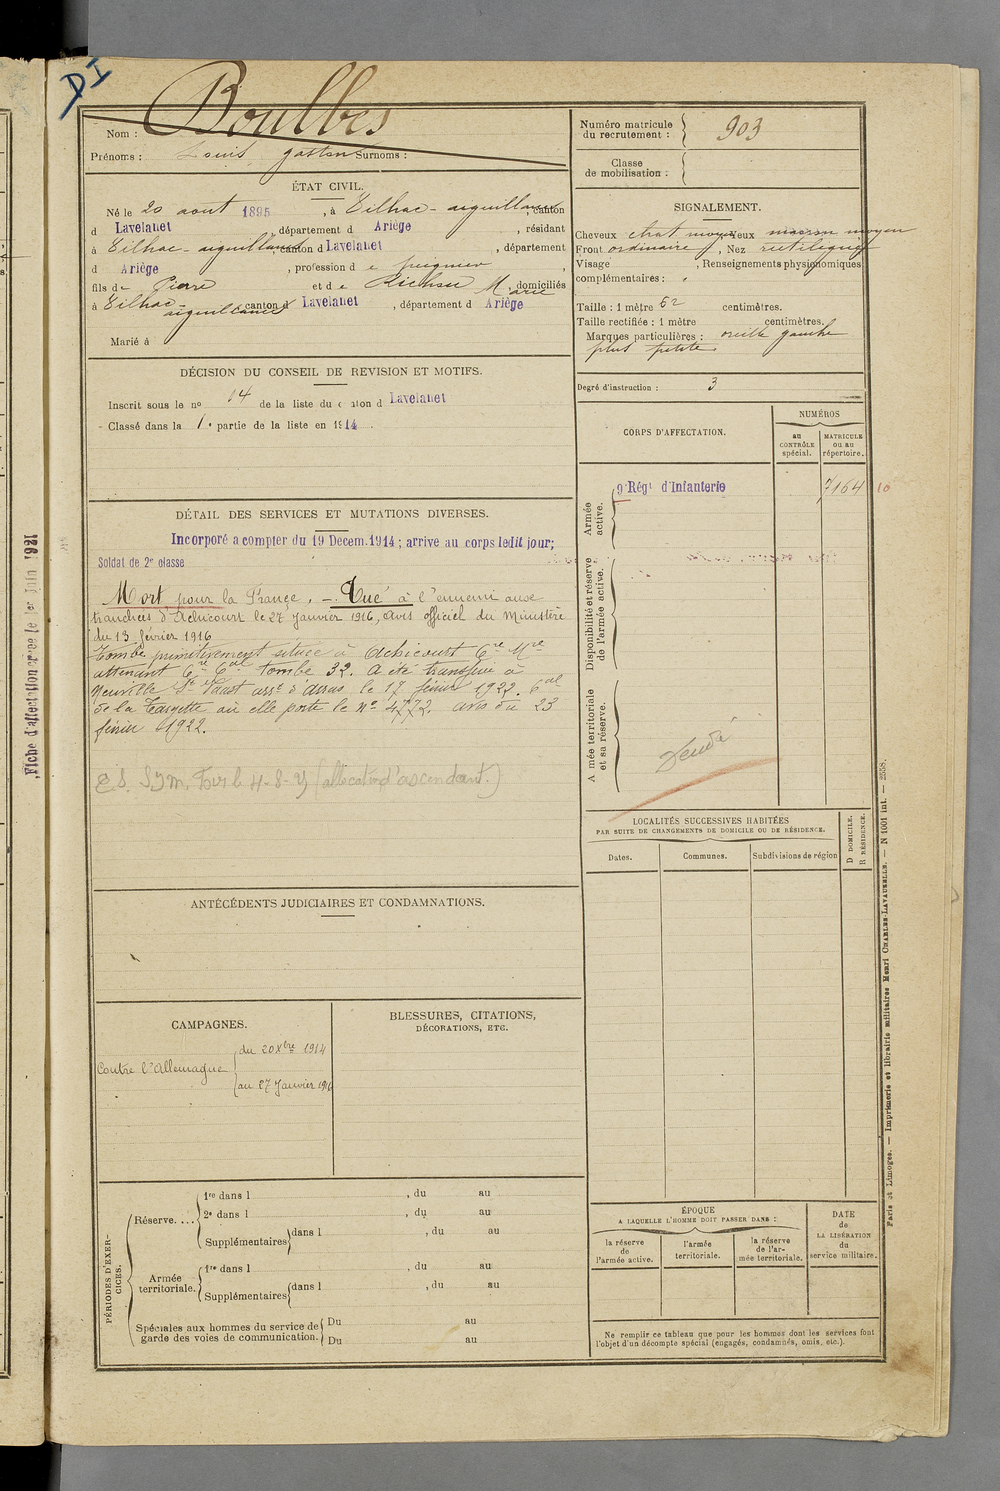 DI
Nom : Boulbès
Prénoms : Louis gaston Surnoms :
ÉTAT CIVIL.
Né le 20 aout 1895, à Eilhac-aiguillanes, canton
d Lavelanet département d Ariège, résidant
à Eilhac-aiguillanes, canton d Lavelanet, département
d Ariège, profession d e peigneur,
fils de Pierre et de Richou Marie, domiciliés
à Eilhac-aiguillanes canton d Lavelanet, département d Ariège
Marié à
DÉCISION DU CONSEIL DE REVISION ET MOTIFS.
Inscrit sous le no 14 de la liste du canton d Lavelanet
Classé dans la 1e partie de la liste en 1914.
DÉTAIL DES SERVICES ET MUTATIONS DIVERSES.
Incorporé a compter du 19 Decem. 1914 ; arrive au corps ledit jour;
Soldat de 2e classe
Mort pour la France. — Tué à l'ennemi aux
tranchées d'Achicourt le 27 Janvier 1916, avis officiel du Ministère
du 13 février 1916
Tombe primitivement située à Achicourt Cre Mre
attenant Cre Cal tombe 32. A été transféré à
Neuville St Vaast arrt d'Arras le 17 février 1922. Cal
de la Targette où elle porte le no 4772. avis du 23
février 1922.
(allocation d'ascendant.)
ANTÉCÉDENTS JUDICIAIRES ET CONDAMNATIONS.
CAMPAGNES.
Contre l'Allemagne
du 20 Xbre 1914
au 27 Janvier 1916
BLESSURES, CITATIONS,
DÉCORATIONS, ETC.
PÉRIODES D'EXERCICES.
Réserve....
1re dans l , du au
2e dans l , du au
Supplémentaires dans l , du au
Armée territoriale.
1re dans l , du au
Supplémentaires dans l , du au
Spéciales aux hommes du service de
garde des voies de communication.
Du au
Du au
Numéro matricule
du recrutement : 903
Classe
de mobilisation :
SIGNALEMENT.
Cheveux chat moyen Yeux marron moyen
Front ordinaire, Nez rectiligne
Visage , Renseignements physionomiques
complémentaires :
Taille : 1 mètre 62 centimètres.
Taille rectifiée : 1 mètre centimètres.
Marques particulières : oreille gauche
plus petite.
Degré d'instruction : 3
CORPS D'AFFECTATION.
NUMÉROS
au
CONTRÔLE
spécial.
MATRICULE
OU AU
répertoire.
Armée
active.
9e Régt d'Infanterie
7164
10
Disponibilité et réserve
de l'armée active.
Armée territoriale
et sa réserve.
LOCALITÉS SUCCESSIVES HABITÉES
PAR SUITE DE CHANGEMENTS DE DOMICILE OU DE RÉSIDENCE.
Dates.
Communes.
Subdivisions de région
D DOMICILE.
R RÉSIDENCE.
ÉPOQUE
A LAQUELLE L'HOMME DOIT PASSER DANS :
la réserve
de
l'armée active.
l'armée
territoriale.
la réserve
de l'ar-
mée territoriale.
DATE
de
LA LIBÉRATION
du
service militaire.
Ne remplir ce tableau que pour les hommes dont les services font
l'objet d'un décompte spécial (engagés, condamnés, omis, etc.).
Paris et Limoges. — Imprimerie et librairie militaires Henri CHARLES-LAVAUZELLE. — N 1001 int. — 2558.
Fiche d'affectation créée le 1er Juin 1921